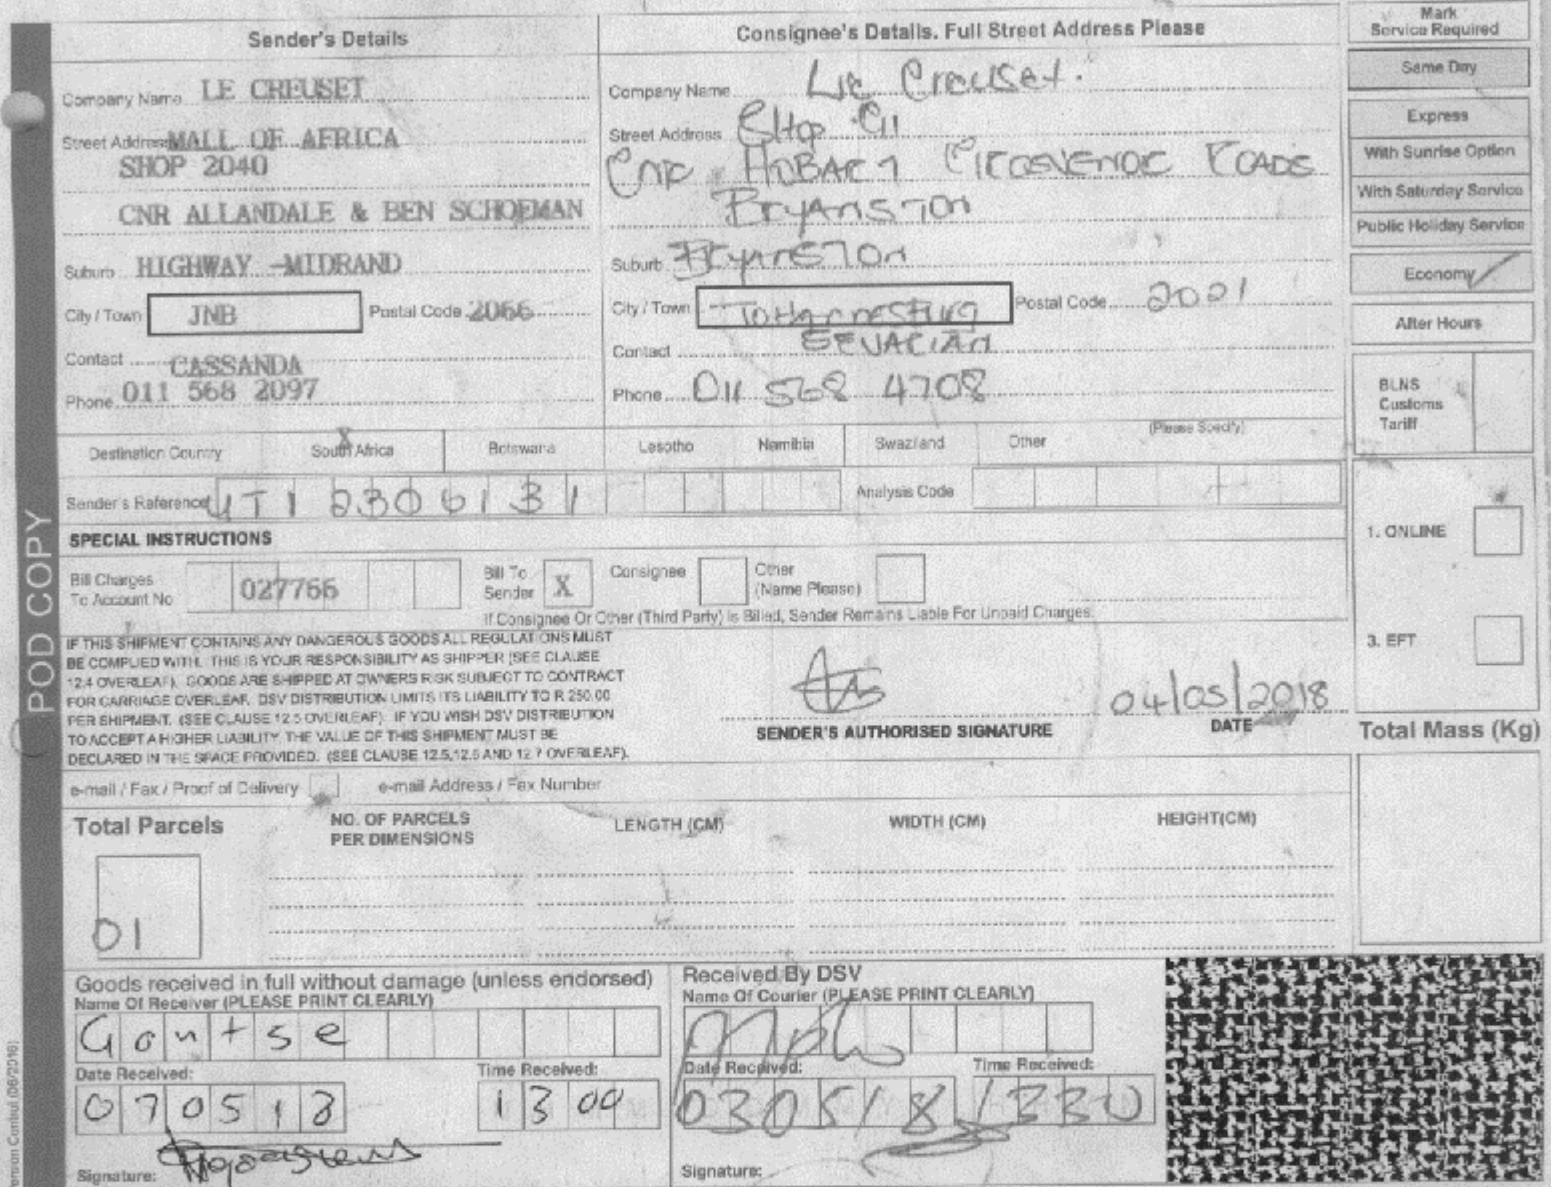 Sender's Details
Company Name LE CREUSET
Street Address MALL OF AFRICA
SHOP 2040
CNR ALLANDALE & BEN SCHOEMAN
Suburb HIGHWAY -MIDRAND
City / Town JNB Postal Code 2066
Contact CASSANDA
Phone 011 568 2097
Consignee's Details. Full Street Address Please
Company Name Le Creuset.
Street Address Shop C11
Cnr HOBART GROSVENOR ROADS
BryAnsTon
Suburb BryAnsTon
City / Town JoHannesburg Postal Code 2021
Contact
Phone 011 568 4708
Mark
Service Required
Same Day
Express
With Sunrise Option
With Saturday Service
Public Holiday Service
Economy
After Hours
BLNS
Customs
Tariff
Destination Country South Africa X Botswana Lesotho Namibia Swaziland Other (Please Specify)
Sender's Reference UTI 2306131 Analysis Code
SPECIAL INSTRUCTIONS
Bill Charges
To Account No 027766 Bill To
Sender X Consignee Other
(Name Please)
If Consignee Or Other (Third Party) is Billed, Sender Remains Liable For Unpaid Charges.
1. ONLINE
3. EFT
IF THIS SHIPMENT CONTAINS ANY DANGEROUS GOODS ALL REGULATIONS MUST
BE COMPLIED WITH. THIS IS YOUR RESPONSIBILITY AS SHIPPER (SEE CLAUSE
12.4 OVERLEAF). GOODS ARE SHIPPED AT OWNERS RISK SUBJECT TO CONTRACT
FOR CARRIAGE OVERLEAF. DSV DISTRIBUTION LIMITS ITS LIABILITY TO R 250.00
PER SHIPMENT. (SEE CLAUSE 12.5 OVERLEAF). IF YOU WISH DSV DISTRIBUTION
TO ACCEPT A HIGHER LIABILITY, THE VALUE OF THIS SHIPMENT MUST BE
DECLARED IN THE SPACE PROVIDED. (SEE CLAUSE 12.5,12.6 AND 12.7 OVERLEAF).
SENDER'S AUTHORISED SIGNATURE
04/05/2018
DATE
Total Mass (Kg)
e-mail / Fax / Proof of Delivery e-mail Address / Fax Number
Total Parcels NO. OF PARCELS
PER DIMENSIONS LENGTH (CM) WIDTH (CM) HEIGHT(CM)
01
Goods received in full without damage (unless endorsed)
Name Of Receiver (PLEASE PRINT CLEARLY)
Gontse
Date Received: Time Received:
070518 1300
Signature:
Received By DSV
Name Of Courier (PLEASE PRINT CLEARLY)
Date Received: Time Received:
030518 1330
Signature:
POD COPY
Version Control (06/2016)